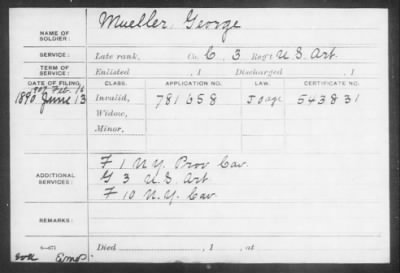 NAME OF SOLDIER: Mueller, George
SERVICE: Late rank, Co. C, 3 Reg't U.S. Art.
TERM OF SERVICE: Enlisted , 1 Discharged , 1
DATE OF FILING. CLASS. APPLICATION NO. LAW. CERTIFICATE NO.
1907 Feb. 16
1890 June 13 Invalid, 781658 543831
Widow,
Minor,
ADDITIONAL SERVICES: F 1 N.Y. Prov Cav
G 3 U.S. Art
F 10 N.Y. Cav
REMARKS:
6—671 Died , 1 , at